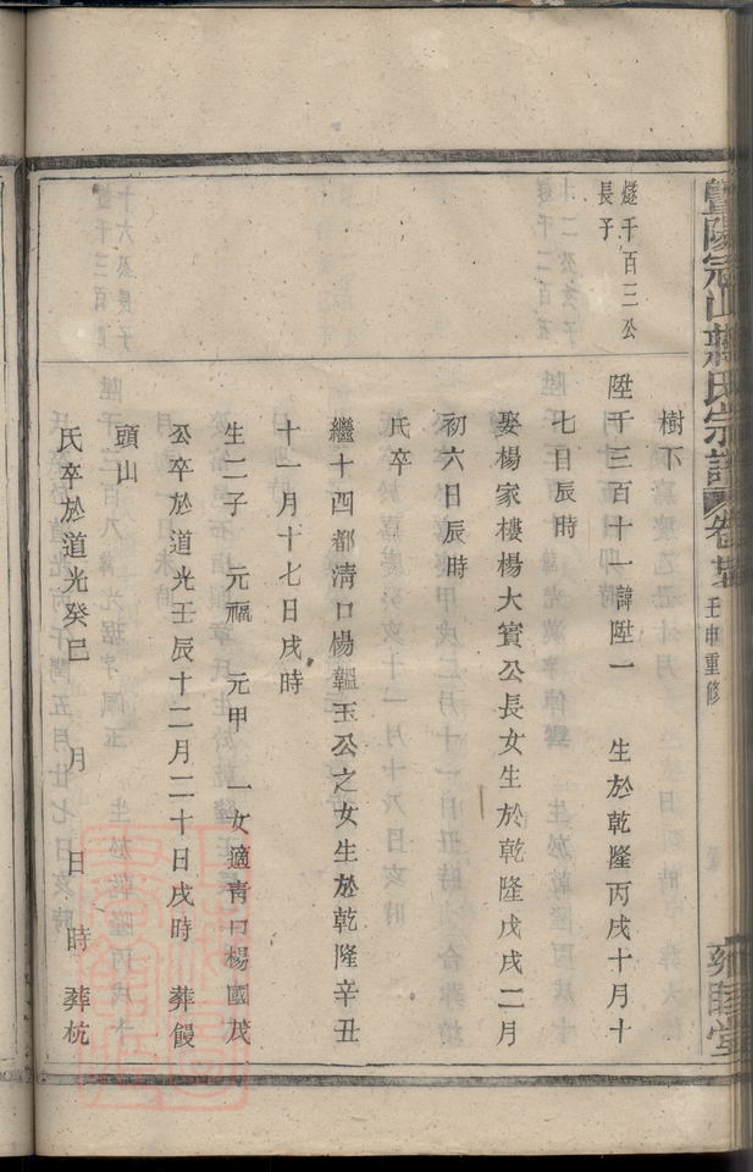 暨陽宗山蔣氏宗譜 卷 壬申重修 雍睦堂
燧千百三公
長子
樹下
陞千三百十一諱陞一 生於乾隆丙戌十月十
七日辰時
娶楊家樓楊大賓公長女生於乾隆戊戌二月
初六日辰時
氏卒
繼十四都清口楊韞玉公之女生於乾隆辛丑
十一月十七日戌時
生二子 元福 元甲 一女適青口楊國茂
公卒於道光壬辰十二月二十日戌時 葬饅
頭山
氏卒於道光癸巳 月 日 時 葬杭